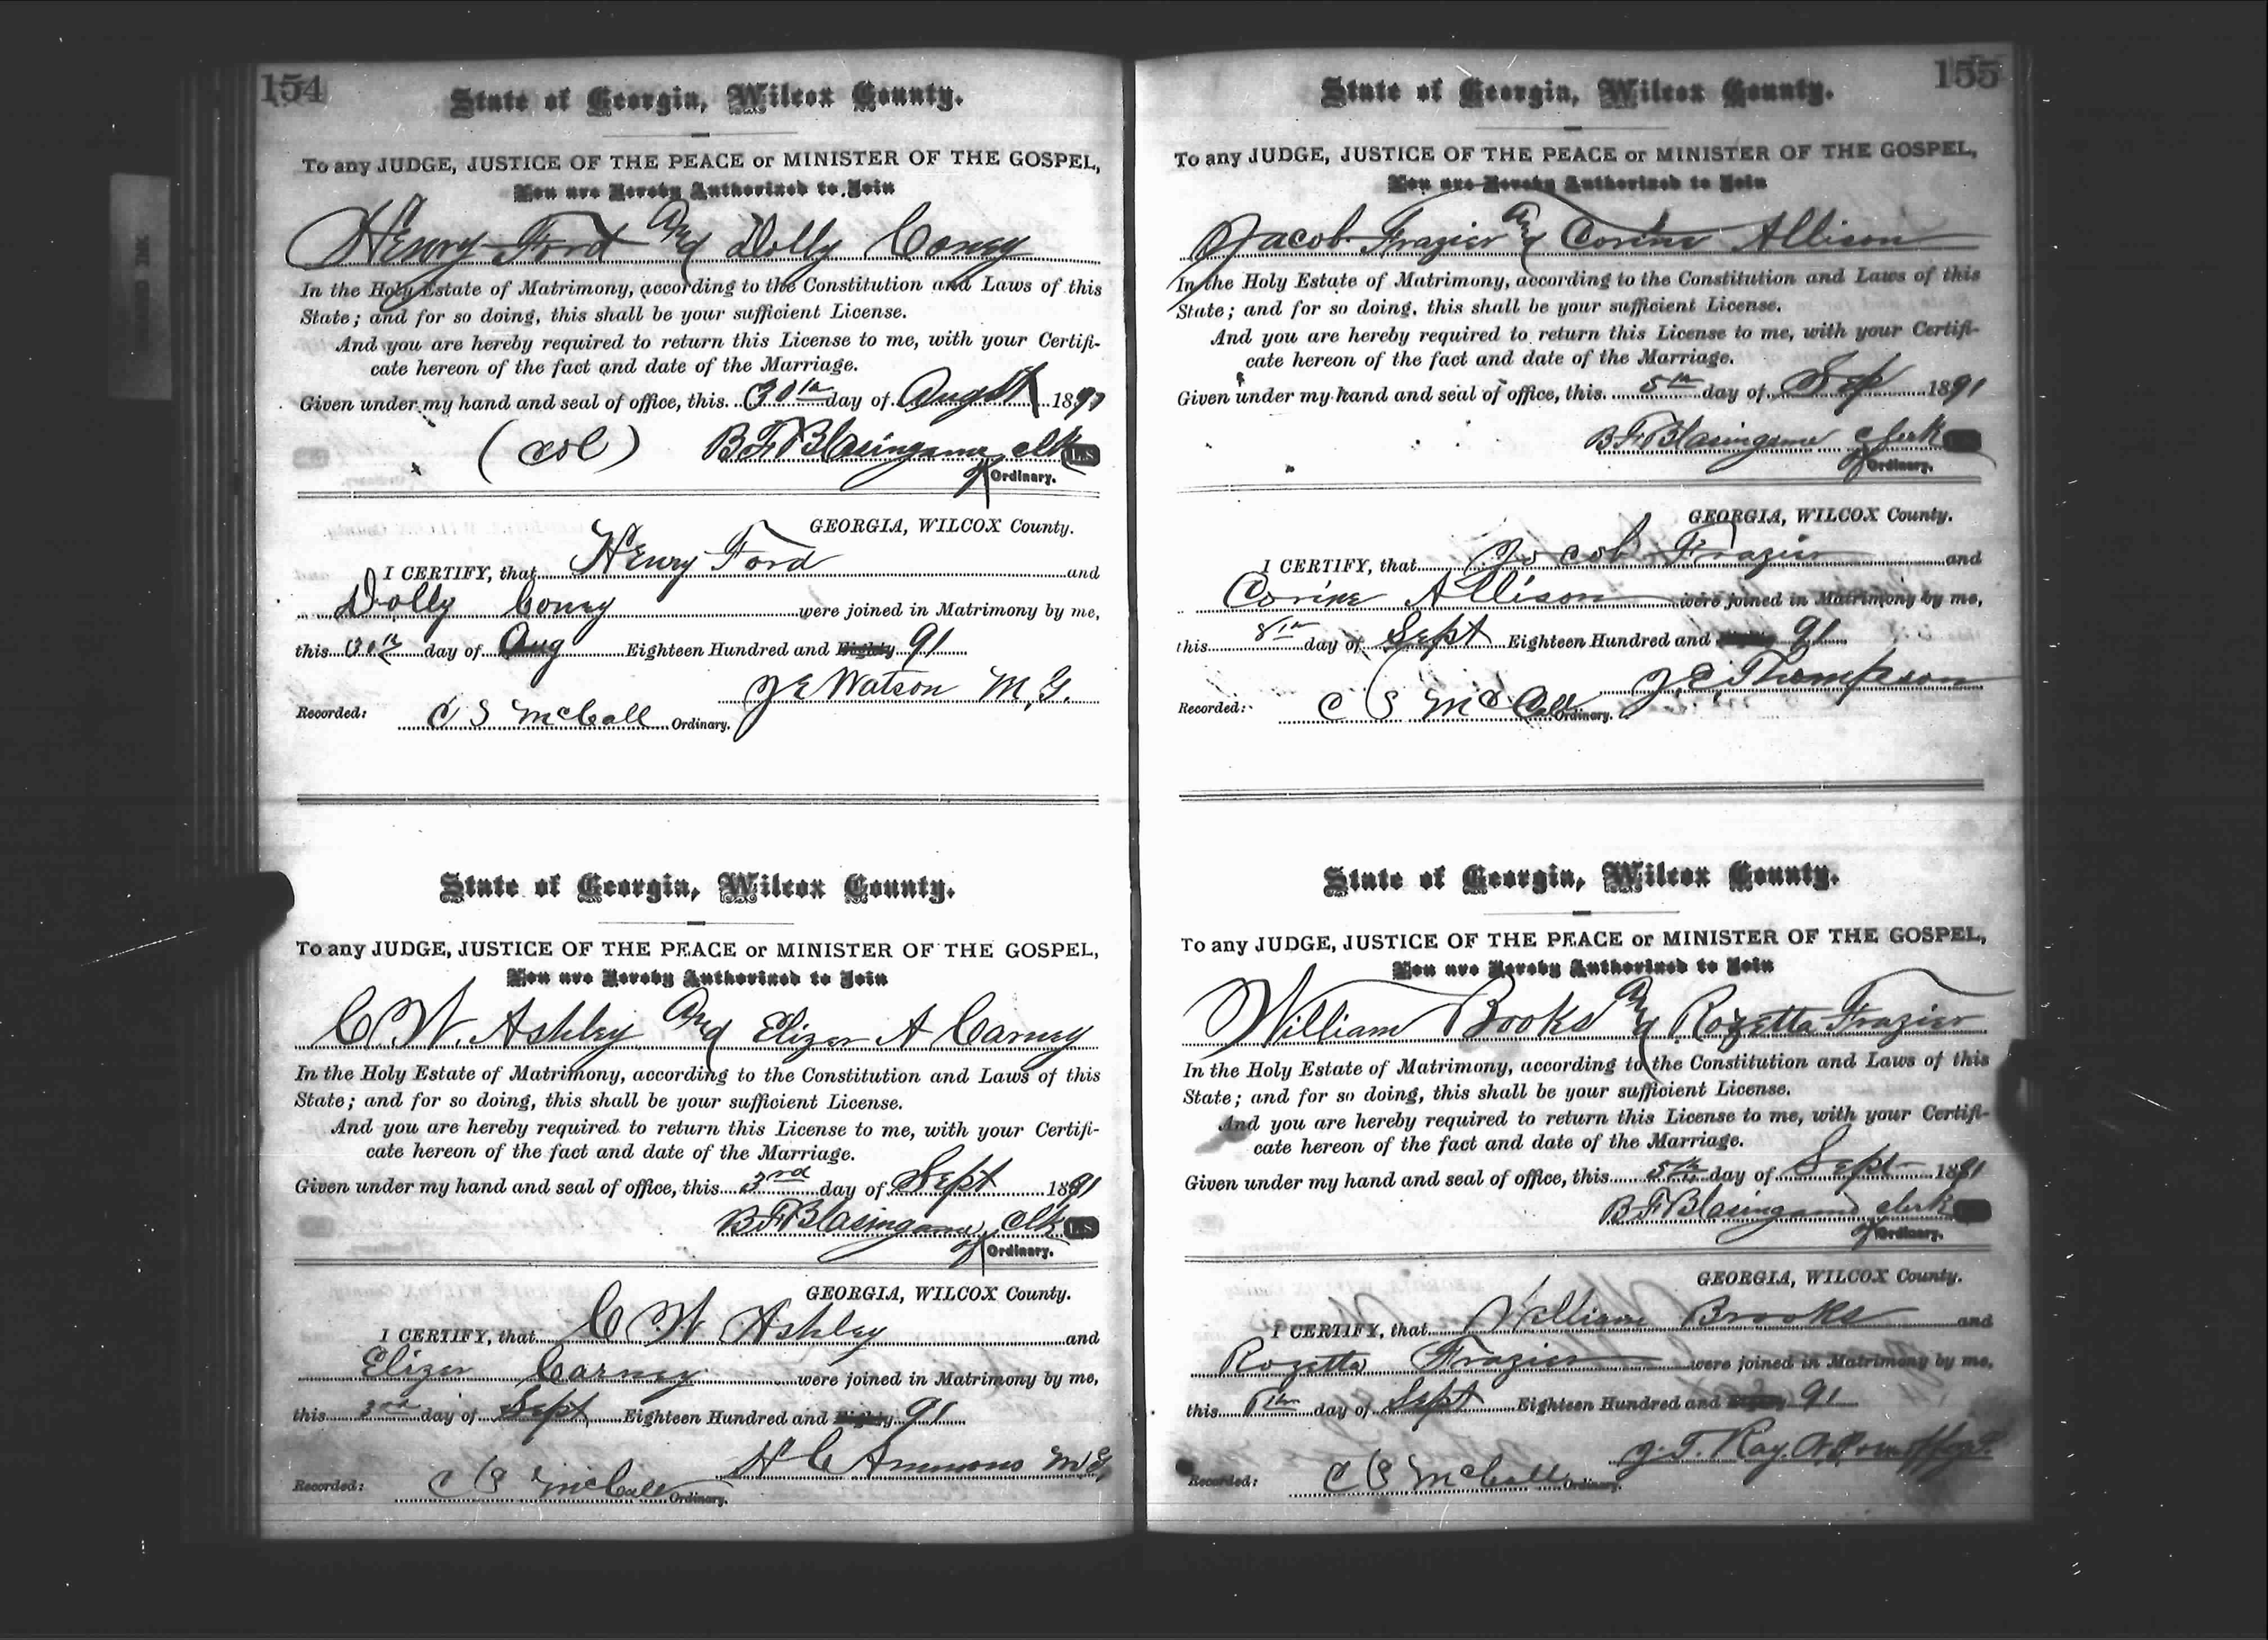 154
State of Georgia, Wilcox County.
To any JUDGE, JUSTICE OF THE PEACE or MINISTER OF THE GOSPEL,
You are Hereby Authorized to Join
Henry Ford And Dolly Coney
In the Holy Estate of Matrimony, according to the Constitution and Laws of this
State; and for so doing, this shall be your sufficient License.
And you are hereby required to return this License to me, with your Certifi-
cate hereon of the fact and date of the Marriage.
Given under my hand and seal of office, this 30th day of August 1891
(col) B F Blasingame clk L.S.
of Ordinary.
GEORGIA, WILCOX County.
I CERTIFY, that Henry Ford and
Dolly Coney were joined in Matrimony by me,
this 30th day of Aug Eighteen Hundred and Eighty 91
J E Watson M.G.
Recorded: C S McCall Ordinary.
State of Georgia, Wilcox County.
To any JUDGE, JUSTICE OF THE PEACE or MINISTER OF THE GOSPEL,
You are Hereby Authorized to Join
C W. Ashley And Elizer A Carney
In the Holy Estate of Matrimony, according to the Constitution and Laws of this
State; and for so doing, this shall be your sufficient License.
And you are hereby required to return this License to me, with your Certifi-
cate hereon of the fact and date of the Marriage.
Given under my hand and seal of office, this 3rd day of Sept 1891
B F Blasingame clk L.S.
of Ordinary.
GEORGIA, WILCOX County.
I CERTIFY, that C W Ashley and
Elizer Carney were joined in Matrimony by me,
this 3rd day of Sept Eighteen Hundred and Eighty 91
H C Ammons M G
Recorded: C S McCall Ordinary.
155
State of Georgia, Wilcox County.
To any JUDGE, JUSTICE OF THE PEACE or MINISTER OF THE GOSPEL,
You are Hereby Authorized to Join
Jacob Frazier And Corine Allison
In the Holy Estate of Matrimony, according to the Constitution and Laws of this
State; and for so doing, this shall be your sufficient License.
And you are hereby required to return this License to me, with your Certifi-
cate hereon of the fact and date of the Marriage.
Given under my hand and seal of office, this 5th day of Sep 1891
B F Blasingame Clerk
of Ordinary.
GEORGIA, WILCOX County.
I CERTIFY, that Jacob Frazier and
Corine Allison were joined in Matrimony by me,
this 8th day of Sept Eighteen Hundred and Eighty 91
J. E. Thompson
Recorded: C S McCall Ordinary.
State of Georgia, Wilcox County.
To any JUDGE, JUSTICE OF THE PEACE or MINISTER OF THE GOSPEL,
You are Hereby Authorized to Join
William Books And Rozetta Frazier
In the Holy Estate of Matrimony, according to the Constitution and Laws of this
State; and for so doing, this shall be your sufficient License.
And you are hereby required to return this License to me, with your Certifi-
cate hereon of the fact and date of the Marriage.
Given under my hand and seal of office, this 5th day of Sept 1891
B F Blasingame clerk
of Ordinary.
GEORGIA, WILCOX County.
I CERTIFY, that William Brooks and
Rozetta Frazier were joined in Matrimony by me,
this 6th day of Sept Eighteen Hundred and Eighty 91
J. T. Ray.
Recorded: C S McCall Ordinary.